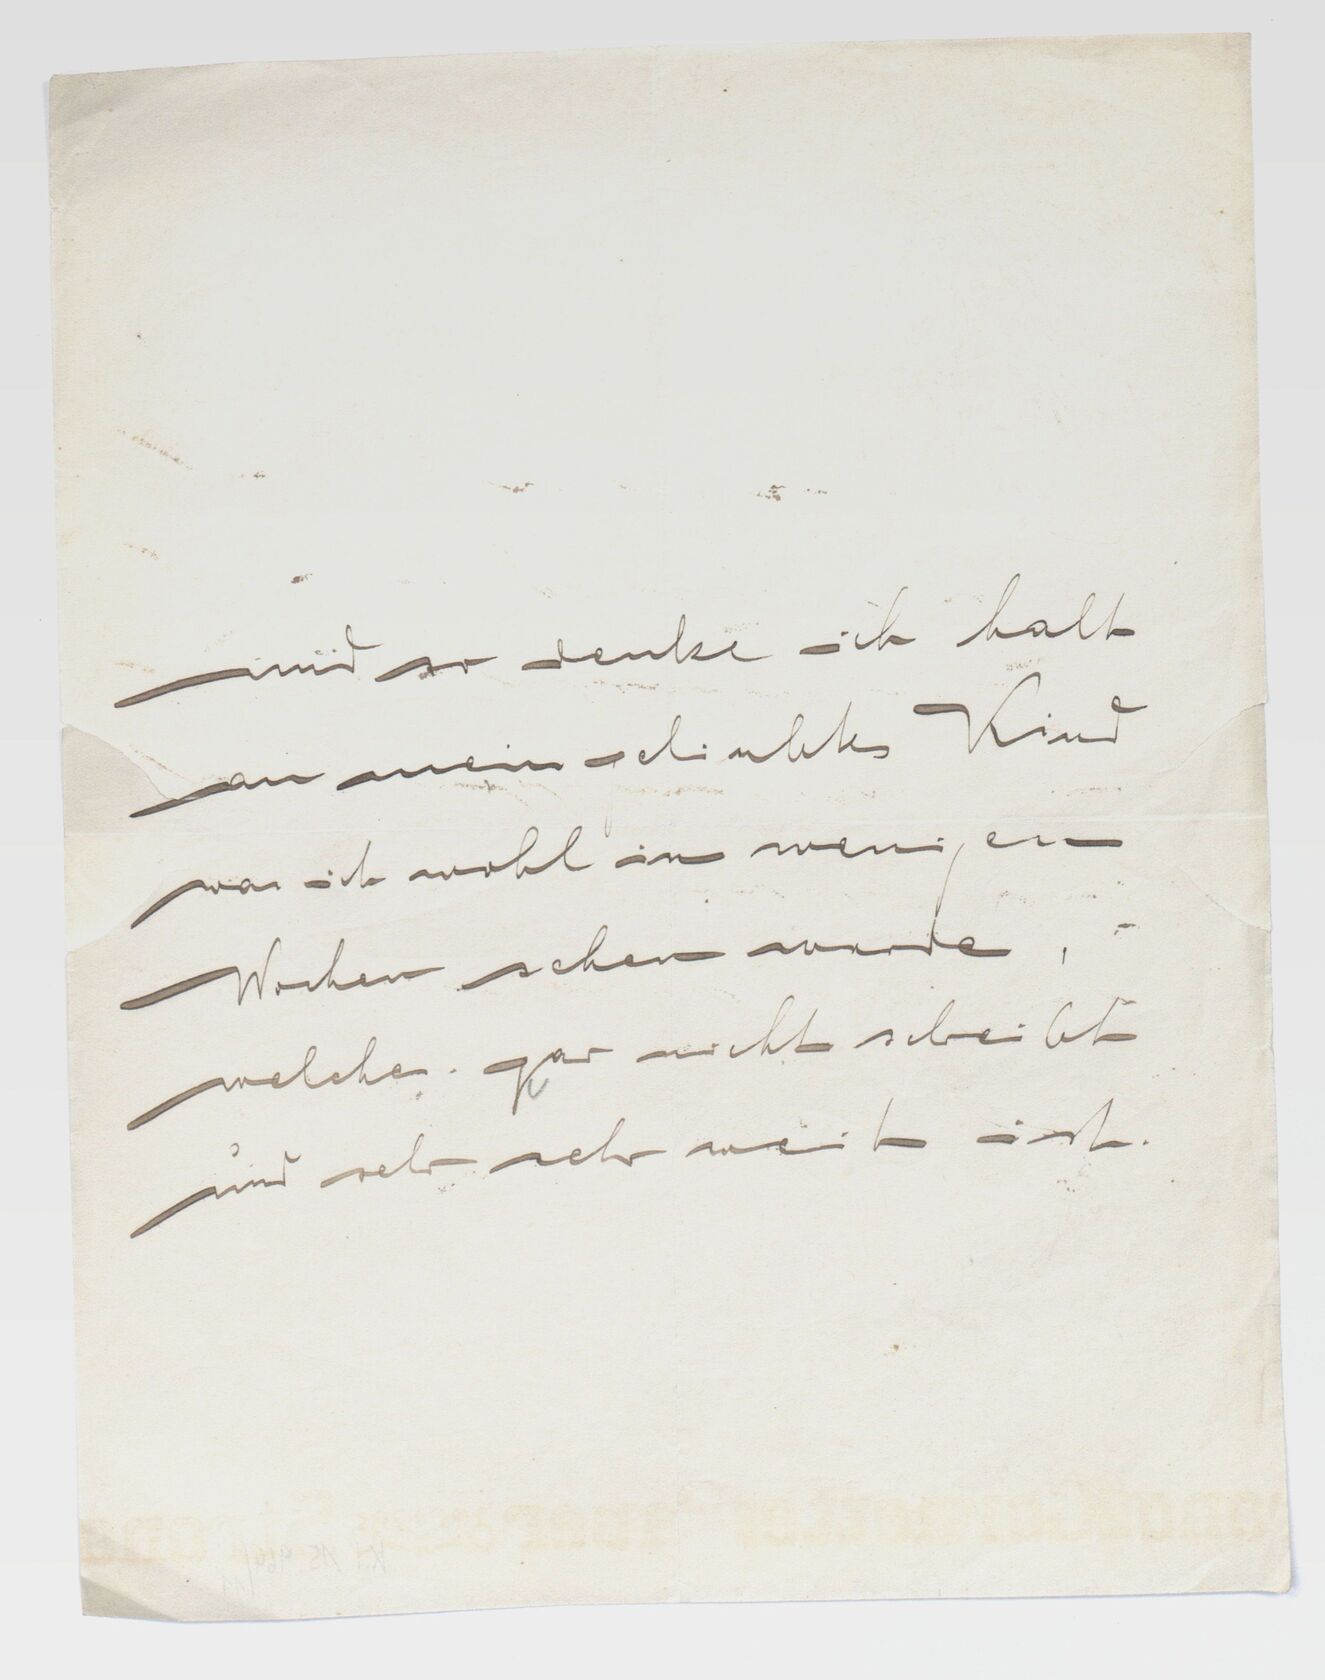 und so denke ich halt
an mein geliebtes Kind
was ich wohl in wenigen
Wochen sehen werde,
welches gar nicht schreibt
und sehr sehr weit ist.